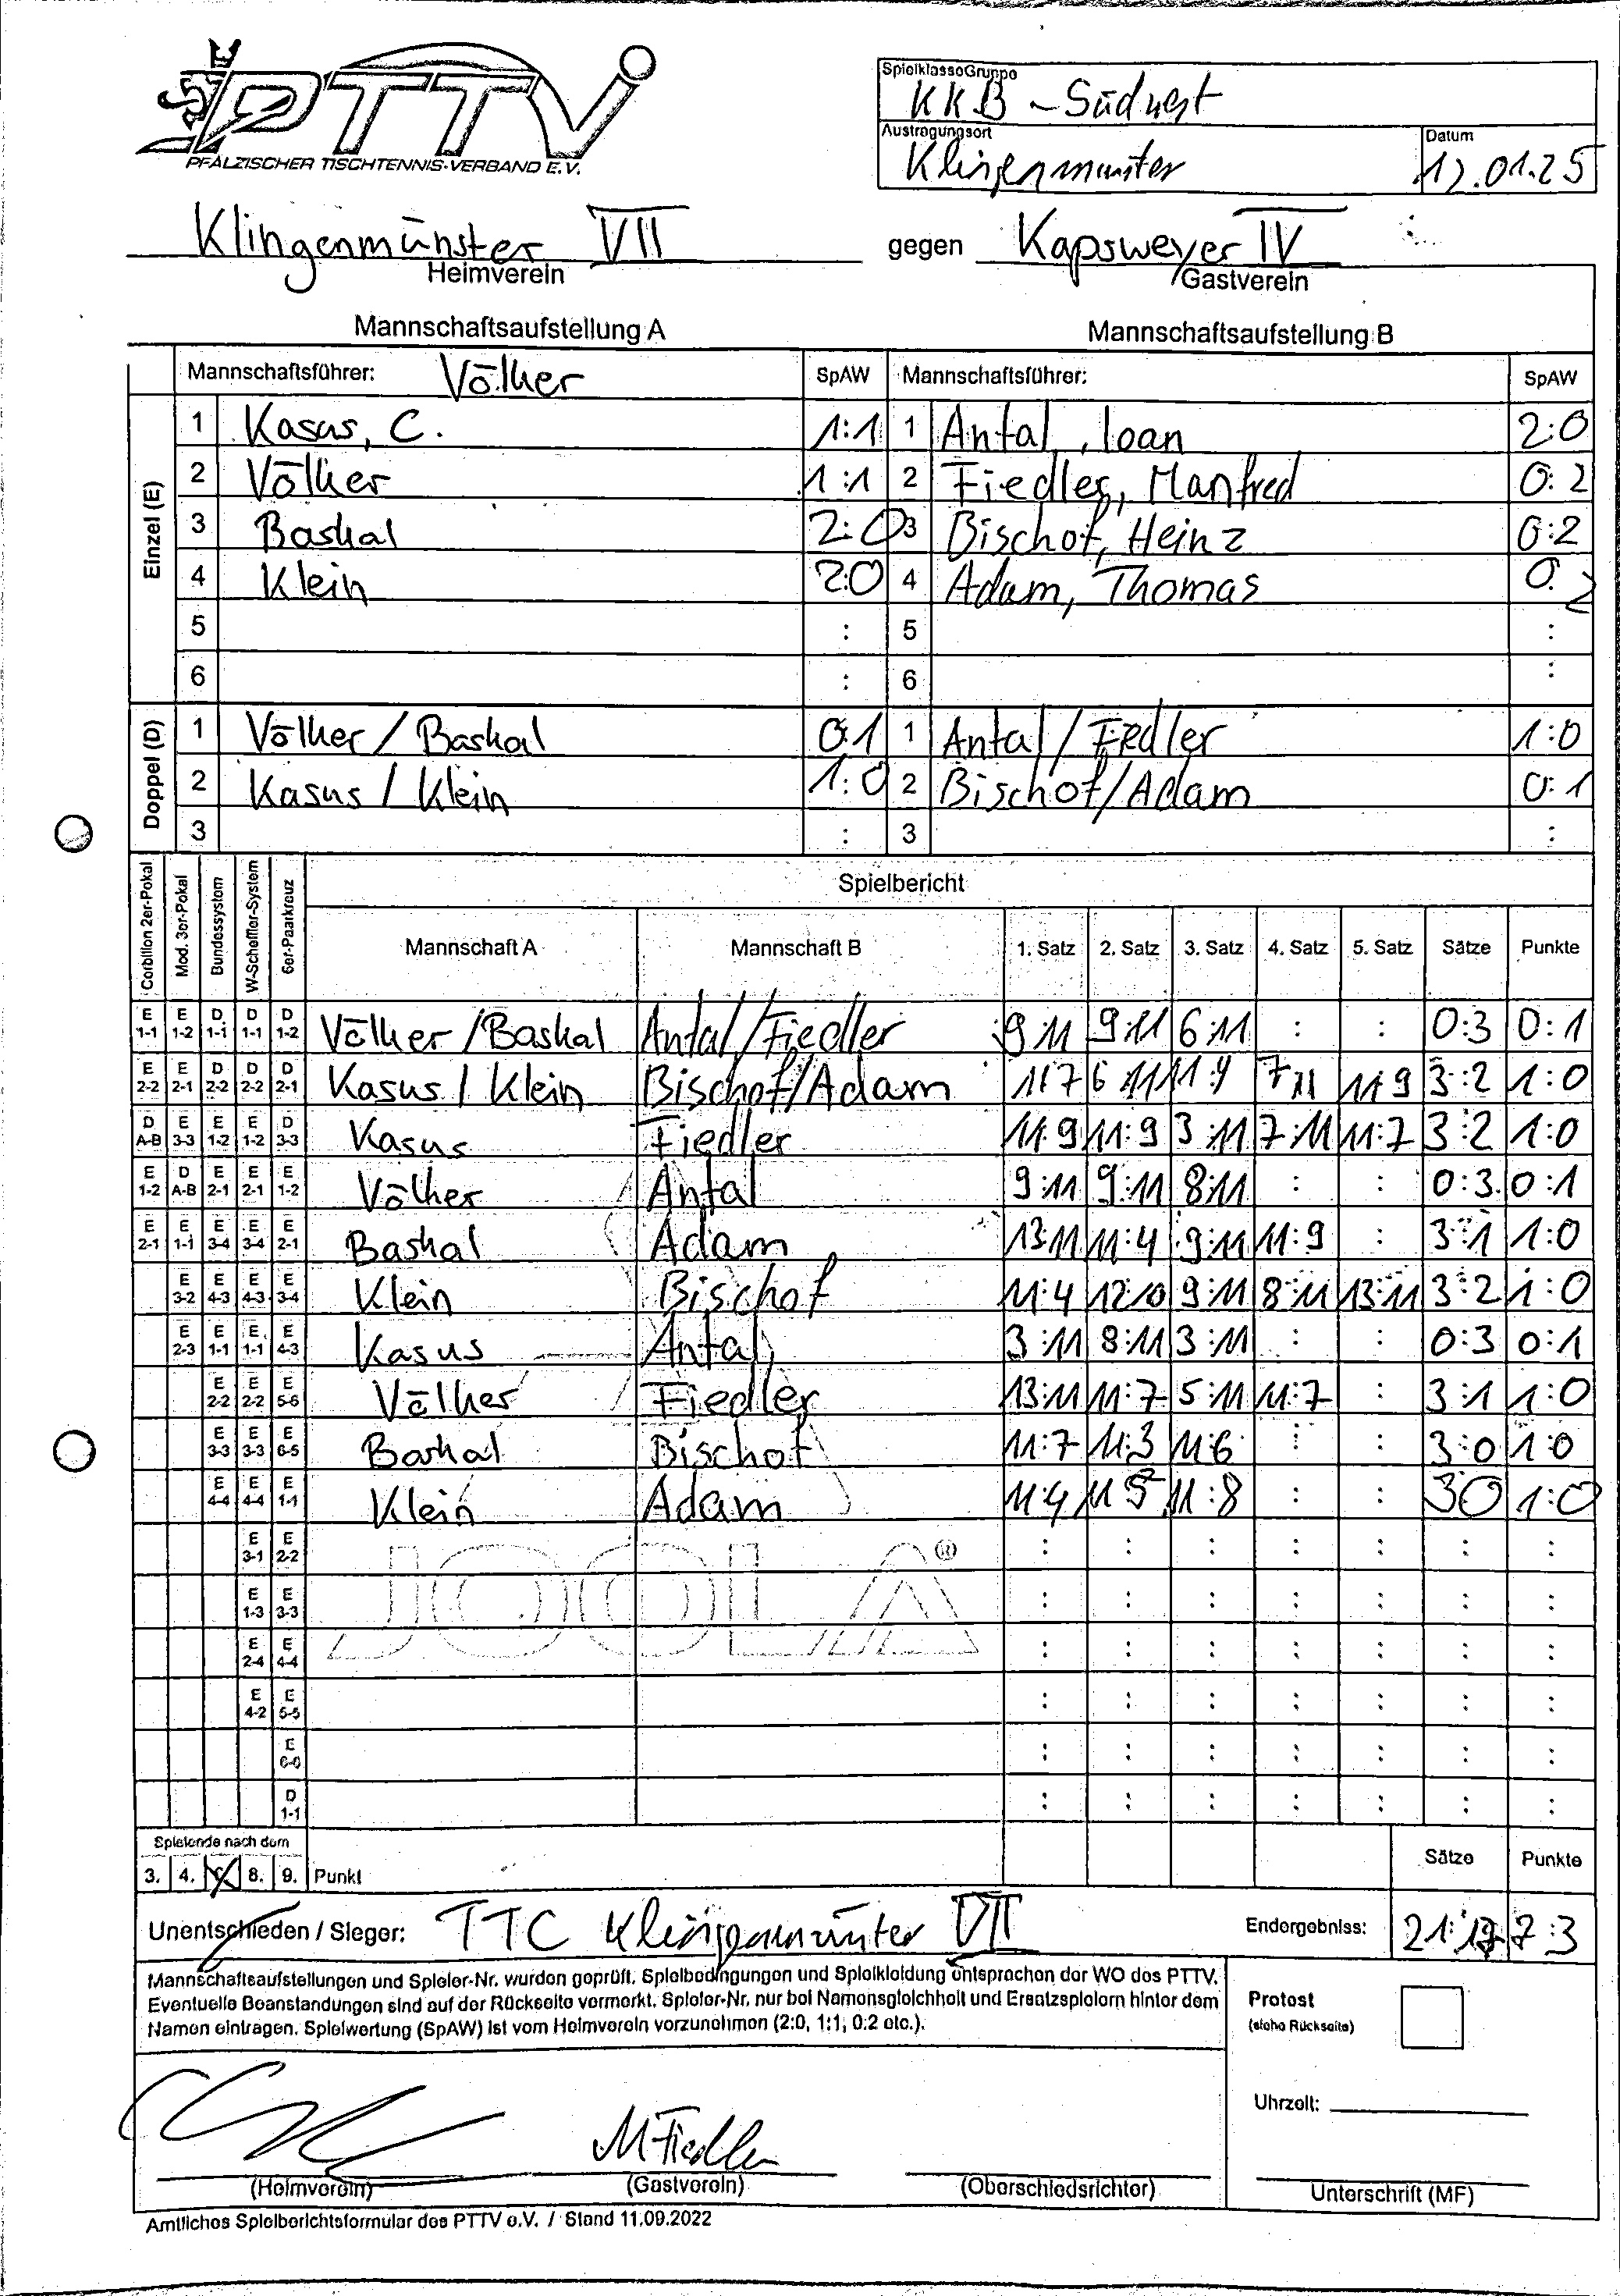 PTTV
PFÄLZISCHER TISCHTENNIS-VERBAND E.V.
Spielklasse Gruppe
KKB - Südwest
Austragungsort Datum
Klingenmünster 12.01.25
Klingenmünster VII gegen Kapsweyer IV
Heimverein Gastverein
Mannschaftsaufstellung A Mannschaftsaufstellung B
Mannschaftsführer: Völker SpAW Mannschaftsführer: SpAW
Einzel (E)
1 Kasus, C. 1:1 1 Antal, Ioan 2:0
2 Völker 1:1 2 Fiedler, Manfred 0:2
3 Baskal 2:0 3 Bischof, Heinz 0:2
4 Klein 2:0 4 Adam, Thomas 0:2
5 : 5 :
6 : 6 :
Doppel (D)
1 Völker / Baskal 0:1 1 Antal / Fiedler 1:0
2 Kasus / Klein 1:0 2 Bischof / Adam 0:1
3 : 3 :
Spielbericht
Corbillon 2er-Pokal Mod. 3er-Pokal Bundessystem W-Scheffler-System 6er-Paarkreuz Mannschaft A Mannschaft B 1. Satz 2. Satz 3. Satz 4. Satz 5. Satz Sätze Punkte
E E D D D
1-1 1-2 1-1 1-1 1-2 Völker / Baskal Antal / Fiedler 9:11 9:11 6:11 : : 0:3 0:1
E E D D D
2-2 2-1 2-2 2-2 2-1 Kasus / Klein Bischof / Adam 11:7 6:11 11:9 7:11 11:9 3:2 1:0
D E E E D
A-B 3-3 1-2 1-2 3-3 Kasus Fiedler 11:9 11:9 3:11 7:11 11:7 3:2 1:0
E D E E E
1-2 A-B 2-1 2-1 1-2 Völker Antal 9:11 9:11 8:11 : : 0:3 0:1
E E E E E
2-1 1-1 3-4 3-4 2-1 Baskal Adam 13:11 11:4 9:11 11:9 : 3:1 1:0
E E E E
3-2 4-3 4-3 3-4 Klein Bischof 11:4 12:10 9:11 8:11 13:11 3:2 1:0
E E E E
2-3 1-1 1-1 4-3 Kasus Antal 3:11 8:11 3:11 : : 0:3 0:1
E E E
2-2 2-2 5-6 Völker Fiedler 13:11 11:7 5:11 11:7 : 3:1 1:0
E E E
3-3 3-3 6-5 Baskal Bischof 11:7 11:3 11:6 : : 3:0 1:0
E E E
4-4 4-4 1-1 Klein Adam 11:4 11:5 11:8 : : 3:0 1:0
E E
3-1 2-2 : : : : : : :
E E
1-3 3-3 : : : : : : :
E E
2-4 4-4 : : : : : : :
E E
4-2 5-5 : : : : : : :
E
6-6 : : : : : : :
D
1-1 : : : : : : :
JOOLA®
Spielende nach dem Sätze Punkte
3. 4. 8. 9. Punkt
Unentschieden / Sieger: TTC Klingenmünster VII Endergebniss: 21:17 7:3
Mannschaftsaufstellungen und Spieler-Nr. wurden geprüft. Spielbedingungen und Spielkleidung entsprechen der WO des PTTV.
Eventuelle Beanstandungen sind auf der Rückseite vermerkt. Spieler-Nr. nur bei Namensgleichheit und Ersatzspielern hinter dem
Namen eintragen. Spielwertung (SpAW) ist vom Heimverein vorzunehmen (2:0, 1:1, 0:2 etc.).
Protest
(siehe Rückseite)
Uhrzeit:
M Fiedler
(Heimverein) (Gastverein) (Oberschiedsrichter) Unterschrift (MF)
Amtliches Spielberichtsformular des PTTV e.V. / Stand 11.09.2022